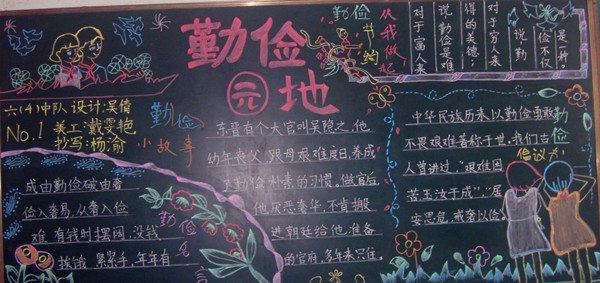 勤俭
园地
勤俭
节约
从我做起
是一种
俭不仅
说勤
对于穷人来
说勤俭是难
得的美德；
对于富人来
六(4)中队 设计：吴倩
No.1 美工：戴雯艳
抄写：杨渝
勤俭
小故事
东晋有个大官叫吴隐之，他
幼年丧父，跟母艰难度日，养成
勤俭朴素的习惯，做官后
他厌恶奢华，不肯搬
进朝廷给他准备
的官府，多年来只住
成由勤俭破由奢
俭入奢易，从奢入俭
难 有钱时摆阔，没钱
挨饿 紧紧手，年年有
勤俭名
中华民族历来以勤俭勇敢
不畏艰难著称于世，我们古
人曾讲过"艰难困
苦玉汝于成"，"居
安思危，戒奢以俭"
勤俭
倡议